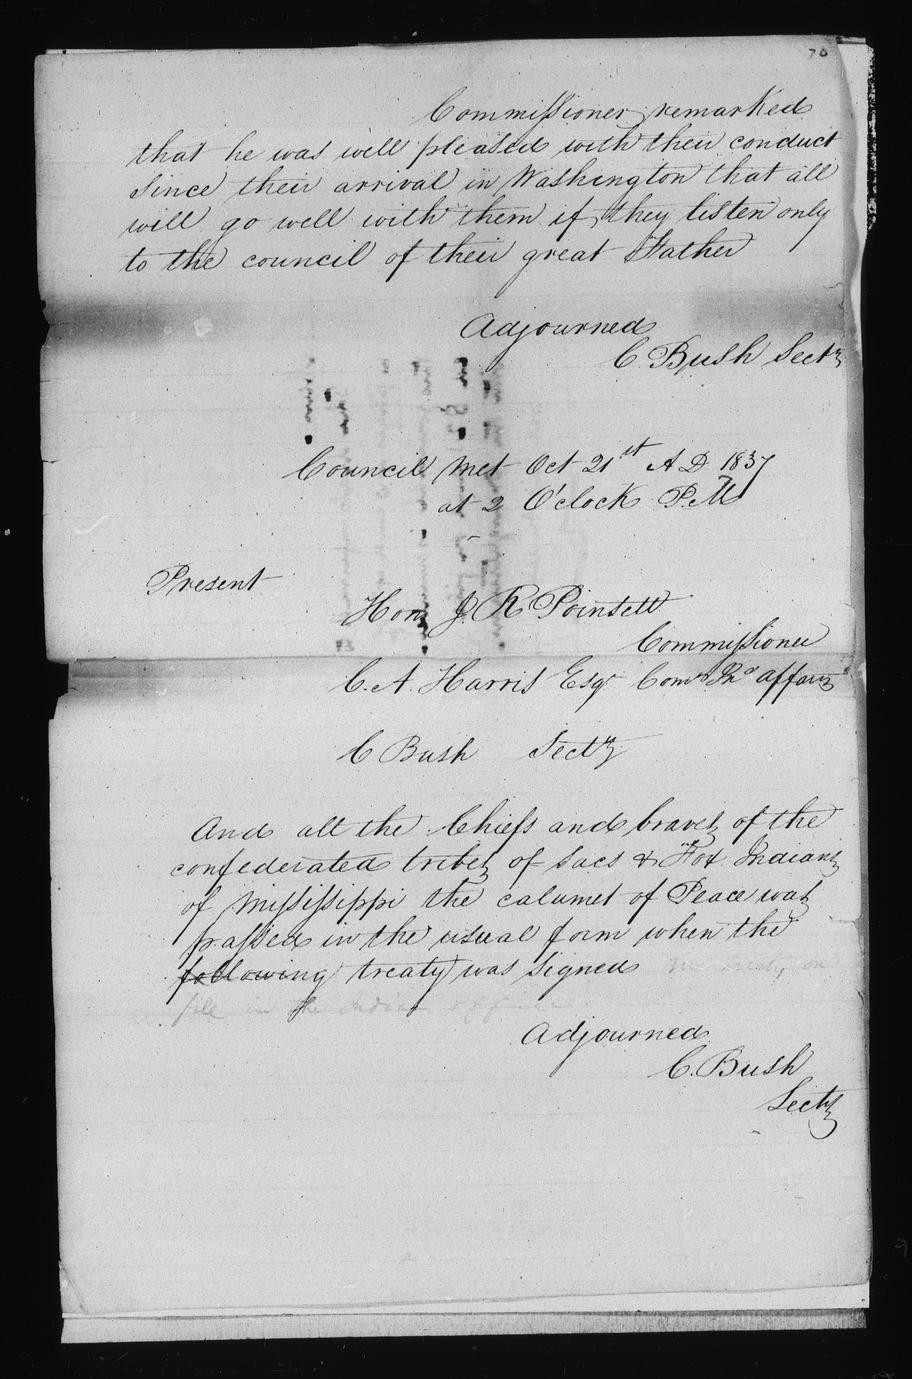 70
Commissioner remarked
that he was well pleased with their conduct
since their arrival in Washington that all
will go well with them if they listen only
to the council of their great Father
Adjourned
C Bush Secty
Council met Oct 21st A D 1837
at 2 O'clock P.M
Present
Hon J. R Poinsett
Commissioner
C. A. Harris Esqr Comr Ind affairs
C Bush Secty
And all the Chiefs and braves of the
confederated tribes of Sacs & Fox Indians
of Mississippi the calumet of Peace was
passed in the usual form when the
following treaty was signed on
file in the Indian office
Adjourned
C. Bush
Secty